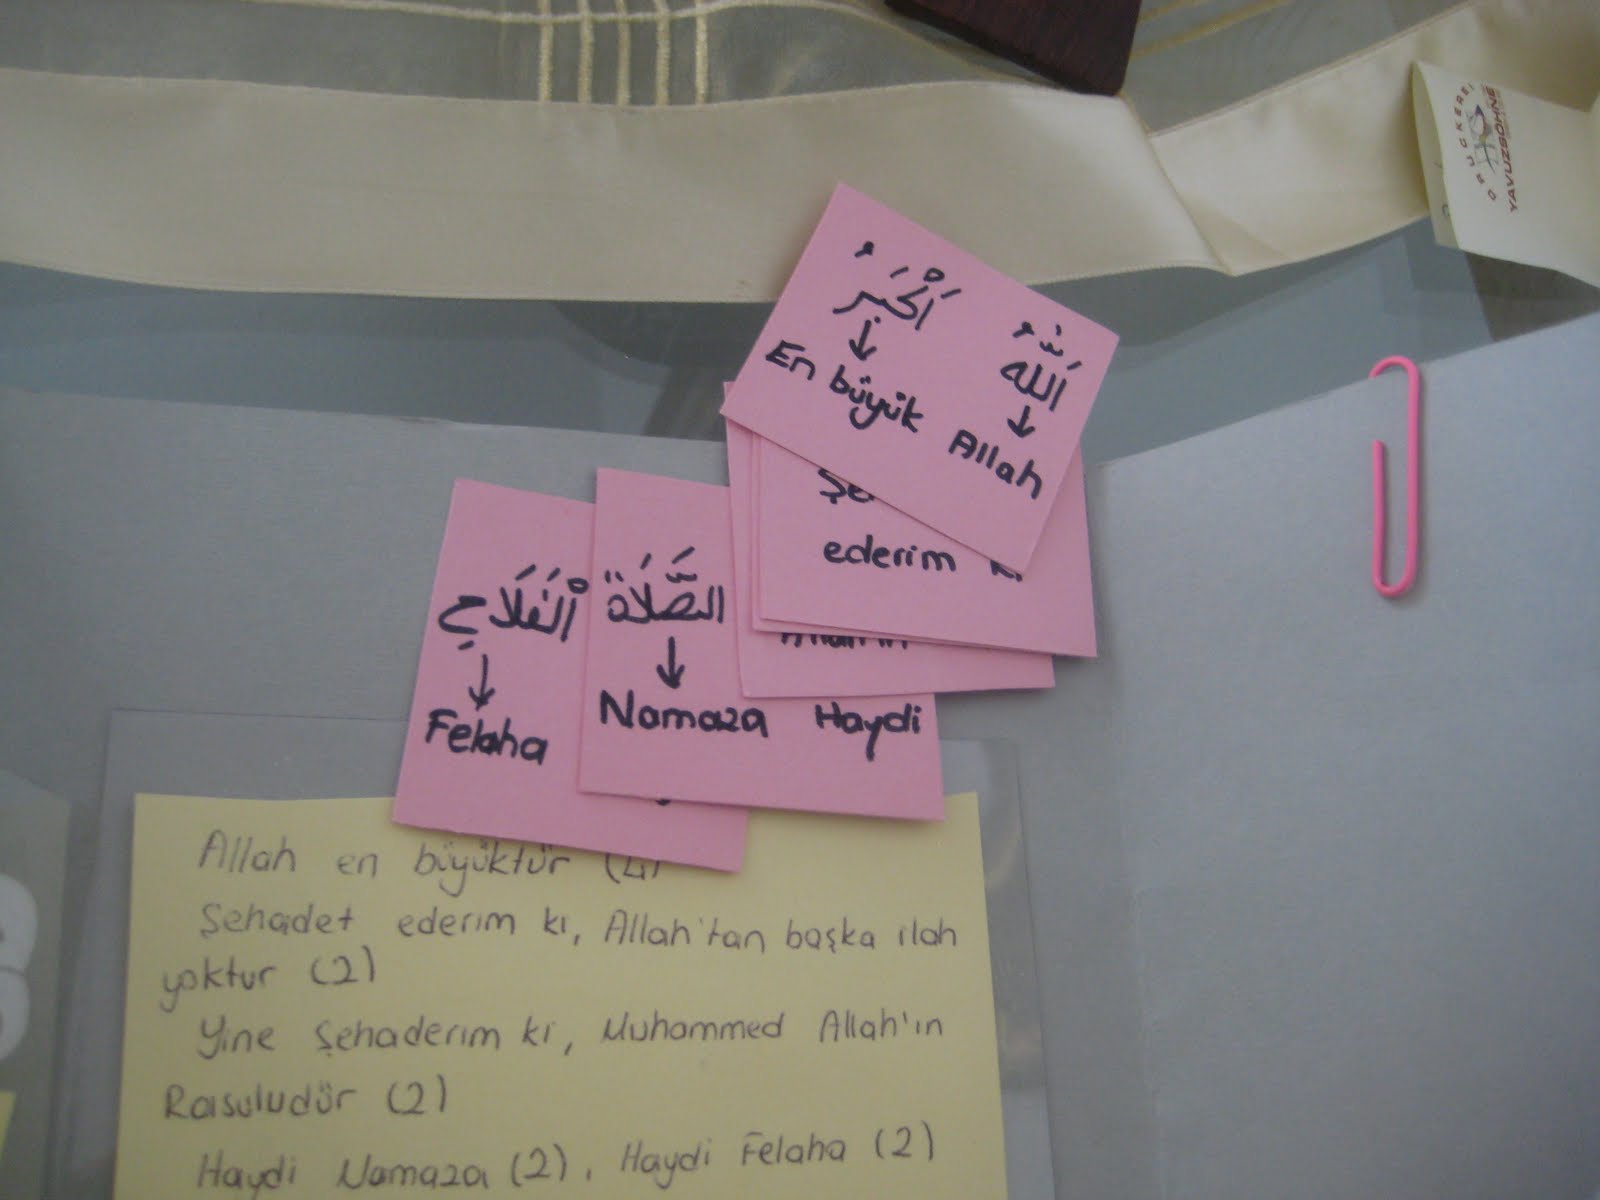 DRUCKEREI
YAVUZSÖHNE
اَللّٰهُ اَكْبَرُ
En büyük Allah
ederim ki
Allah'ın
اَلصَّلَاةِ
Namaza Haydi
اَلْفَلَاحِ
Felaha
Allah en büyüktür (4)
Şehadet ederim ki, Allah'tan başka ilah
yoktur (2)
Yine şehaderim ki, Muhammed Allah'ın
Rasuludür (2)
Haydi Namaza (2), Haydi Felaha (2)